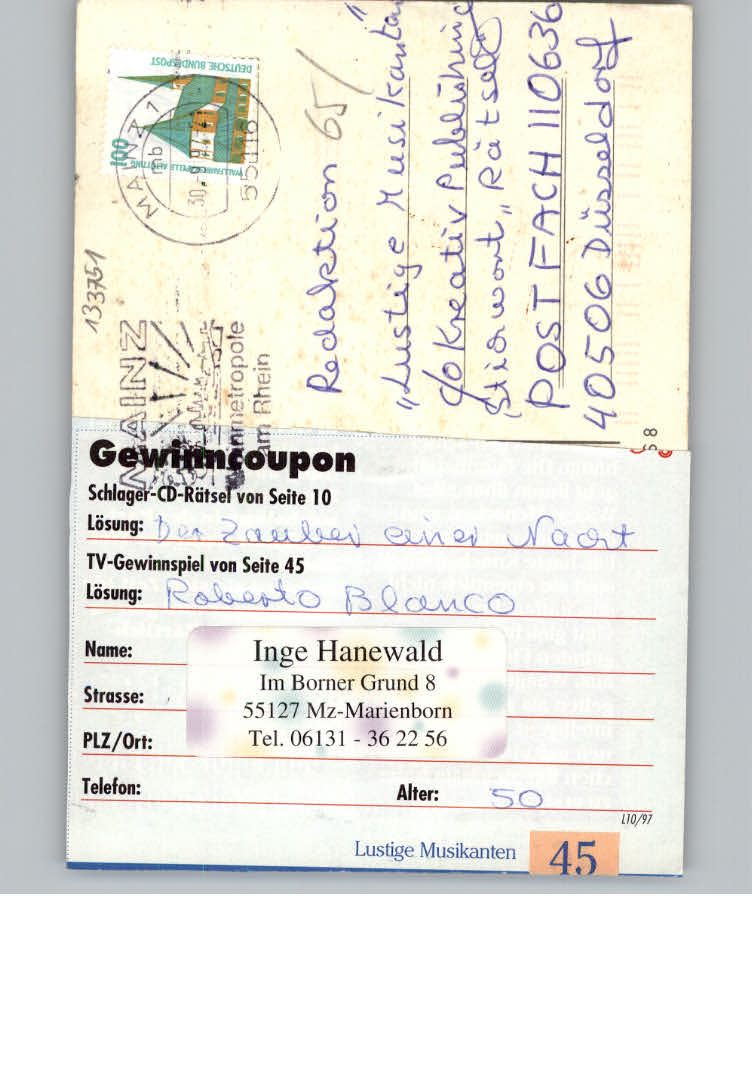 DEUTSCHE BUNDESPOST
100
WALLFAHRTSKAPELLE ALTÖTTING
MAINZ 1
mb
30.-9.97
55116
133751
MAINZ
metropole
am Rhein
Redaktion 65/
"Lustige Musikanten"
c/o Kreativ Publishing
Stichwort "Rätsel"
POSTFACH 110636
40506 Düsseldorf
68
Gewinncoupon
Schlager-CD-Rätsel von Seite 10
Lösung: Der Zauber einer Nacht
TV-Gewinnspiel von Seite 45
Lösung: Roberto Blanco
Name:
Inge Hanewald
Im Borner Grund 8
Strasse:
55127 Mz-Marienborn
PLZ/Ort:
Tel. 06131 - 36 22 56
Telefon:
Alter: 50
L10/97
Lustige Musikanten 45